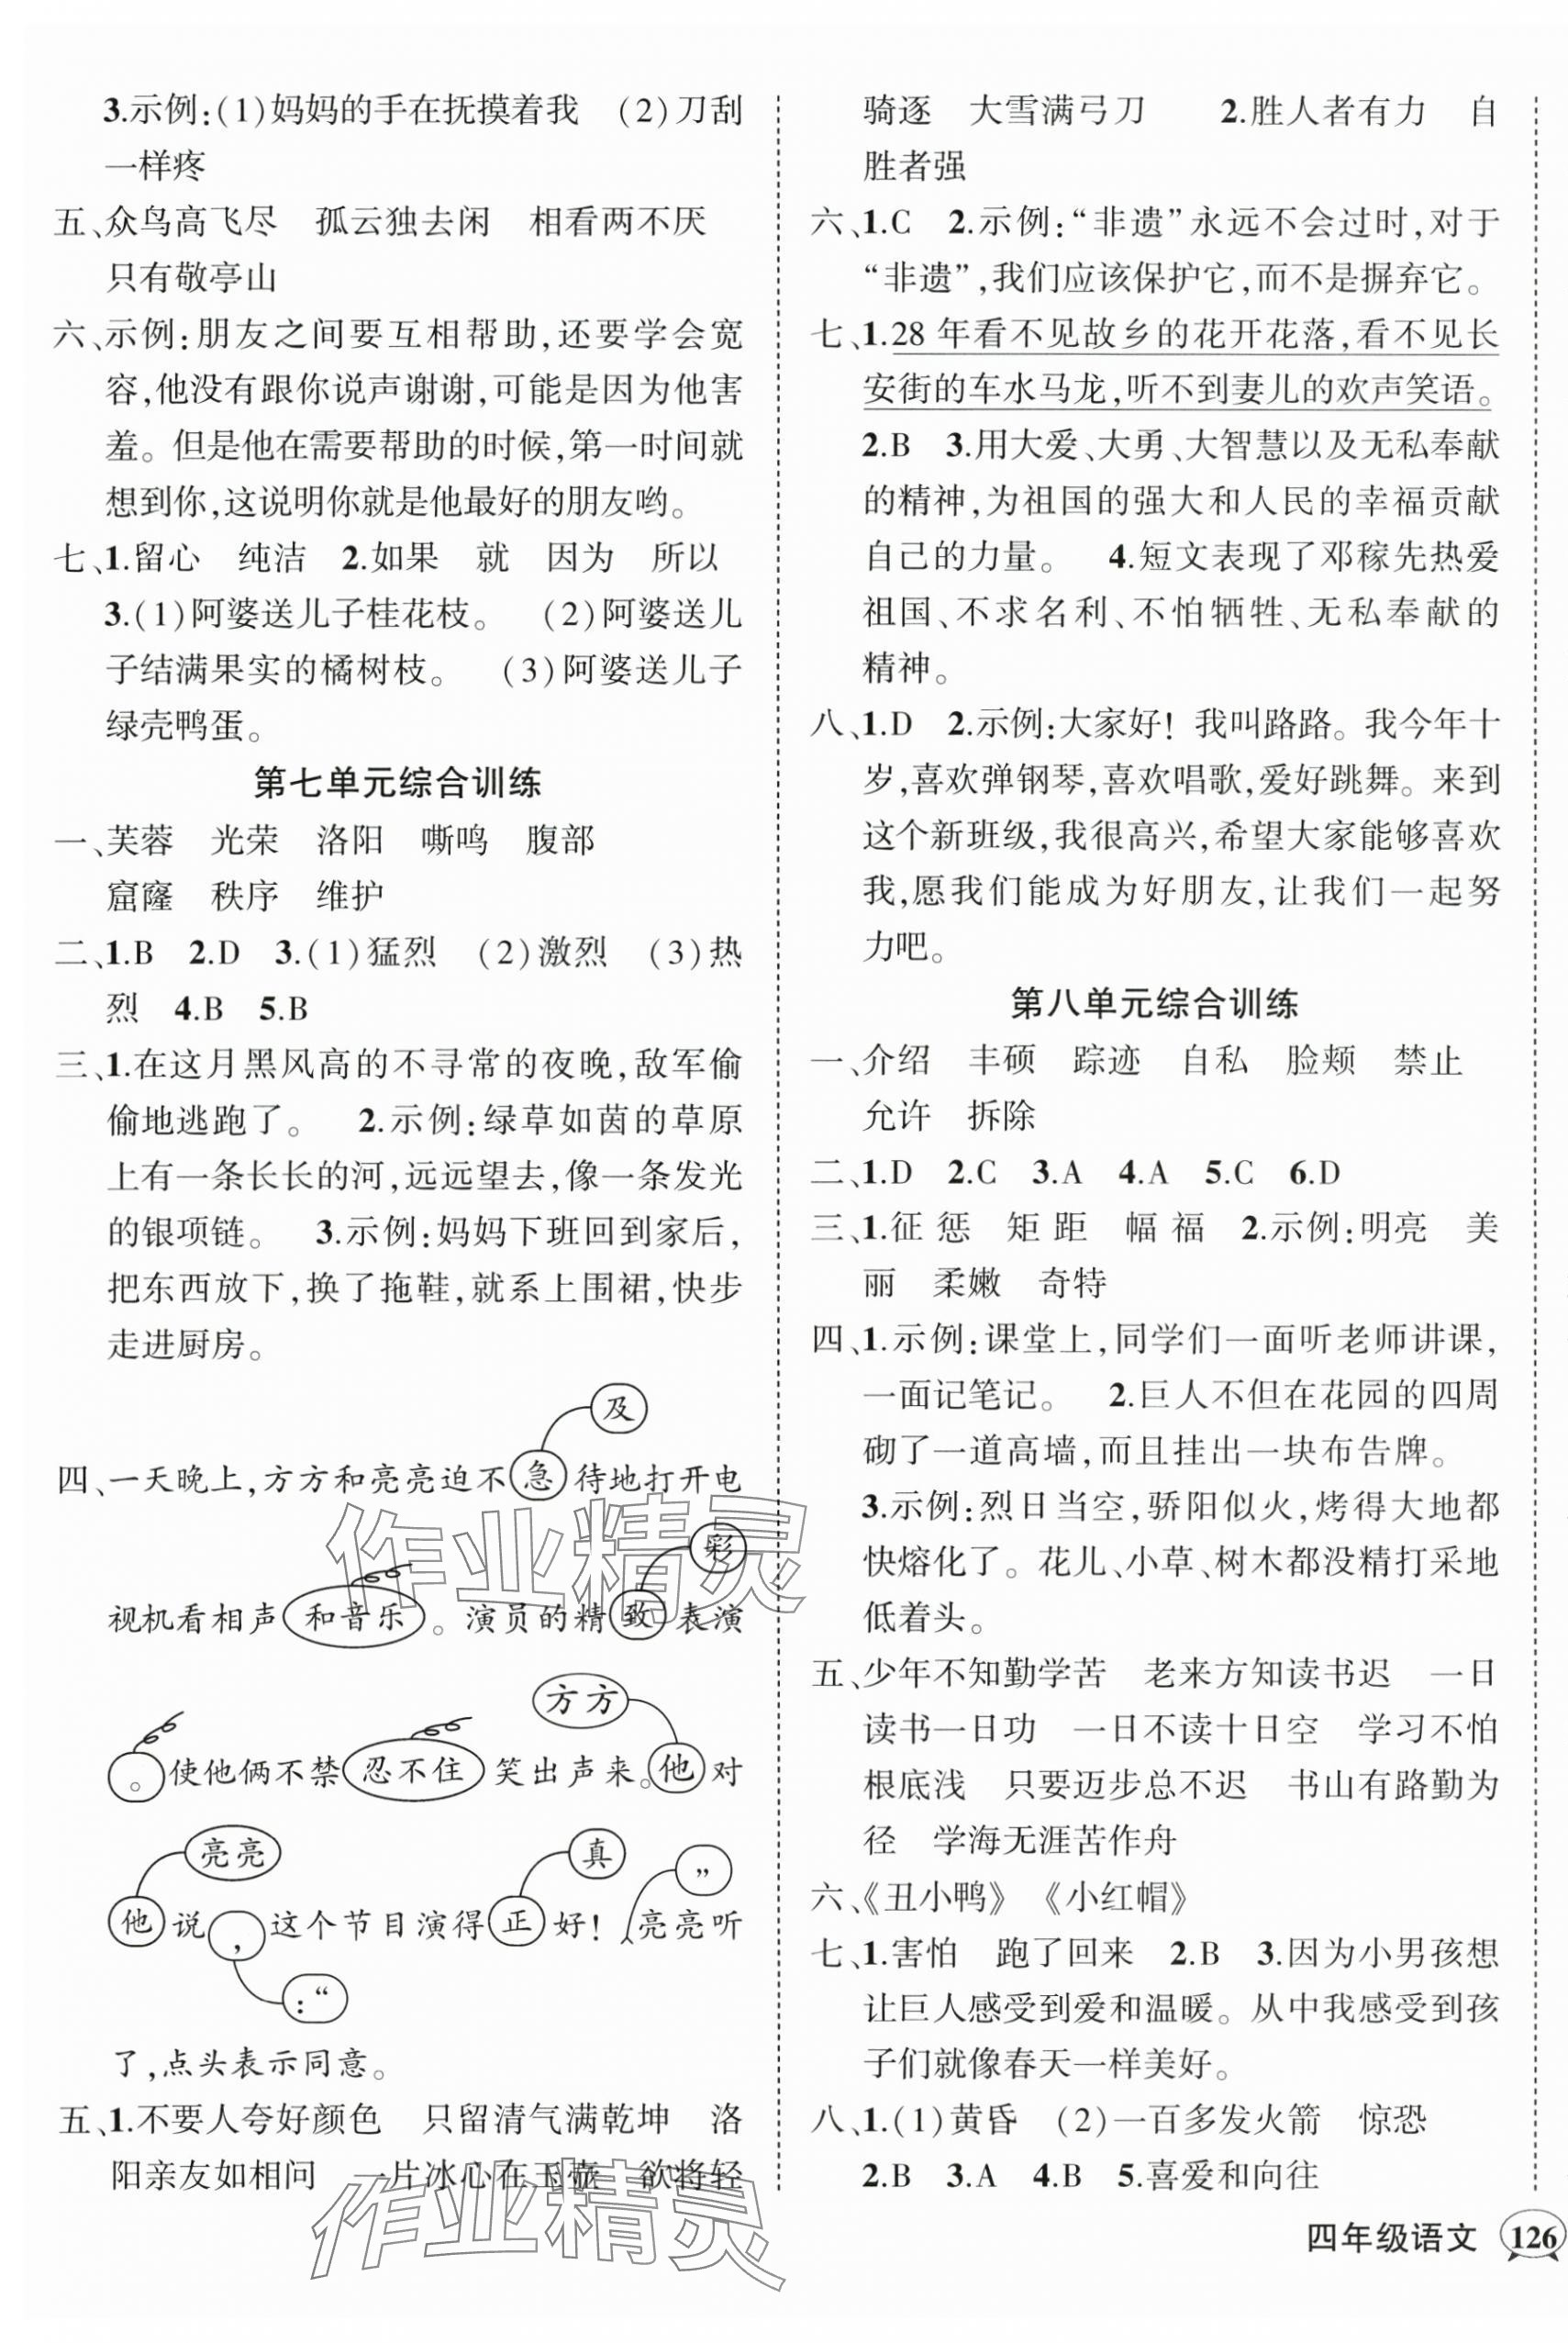 3.示例:(1)妈妈的手在抚摸着我 (2)刀刮
一样疼
五、众鸟高飞尽 孤云独去闲 相看两不厌
只有敬亭山
六、示例:朋友之间要互相帮助,还要学会宽
容,他没有跟你说声谢谢,可能是因为他害
羞。但是他在需要帮助的时候,第一时间就
想到你,这说明你就是他最好的朋友哟。
七、1.留心 纯洁 2.如果 就 因为 所以
3.(1)阿婆送儿子桂花枝。 (2)阿婆送儿
子结满果实的橘树枝。 (3)阿婆送儿子
绿壳鸭蛋。
第七单元综合训练
一、芙蓉 光荣 洛阳 嘶鸣 腹部
窟窿 秩序 维护
二、1.B 2.D 3.(1)猛烈 (2)激烈 (3)热
烈 4.B 5.B
三、1.在这月黑风高的不寻常的夜晚,敌军偷
偷地逃跑了。 2.示例:绿草如茵的草原
上有一条长长的河,远远望去,像一条发光
的银项链。 3.示例:妈妈下班回到家后,
把东西放下,换了拖鞋,就系上围裙,快步
走进厨房。
及
四、一天晚上,方方和亮亮迫不急待地打开电
彩
视机看相声和音乐。演员的精致表演
方方
。使他俩不禁忍不住笑出声来。他对
亮亮 真 ”
他说,这个节目演得正好!亮亮听
:“
了,点头表示同意。
五、1.不要人夸好颜色 只留清气满乾坤 洛
阳亲友如相问 一片冰心在玉壶 欲将轻
骑逐 大雪满弓刀 2.胜人者有力 自
胜者强
六、1.C 2.示例:“非遗”永远不会过时,对于
“非遗”,我们应该保护它,而不是摒弃它。
七、1.28 年看不见故乡的花开花落,看不见长
安街的车水马龙,听不到妻儿的欢声笑语。
2.B 3.用大爱、大勇、大智慧以及无私奉献
的精神,为祖国的强大和人民的幸福贡献
自己的力量。 4.短文表现了邓稼先热爱
祖国、不求名利、不怕牺牲、无私奉献的
精神。
八、1.D 2.示例:大家好! 我叫路路。我今年十
岁,喜欢弹钢琴,喜欢唱歌,爱好跳舞。来到
这个新班级,我很高兴,希望大家能够喜欢
我,愿我们能成为好朋友,让我们一起努
力吧。
第八单元综合训练
一、介绍 丰硕 踪迹 自私 脸颊 禁止
允许 拆除
二、1.D 2.C 3.A 4.A 5.C 6.D
三、1.征 惩 矩 距 幅 福 2.示例:明亮 美
丽 柔嫩 奇特
四、1.示例:课堂上,同学们一面听老师讲课,
一面记笔记。 2.巨人不但在花园的四周
砌了一道高墙,而且挂出一块布告牌。
3.示例:烈日当空,骄阳似火,烤得大地都
快熔化了。花儿、小草、树木都没精打采地
低着头。
五、少年不知勤学苦 老来方知读书迟 一日
读书一日功 一日不读十日空 学习不怕
根底浅 只要迈步总不迟 书山有路勤为
径 学海无涯苦作舟
六、《丑小鸭》 《小红帽》
七、1.害怕 跑了回来 2.B 3.因为小男孩想
让巨人感受到爱和温暖。从中我感受到孩
子们就像春天一样美好。
八、1.(1)黄昏 (2)一百多发火箭 惊恐
2.B 3.A 4.B 5.喜爱和向往
四年级语文 126
作业精灵
作业精灵